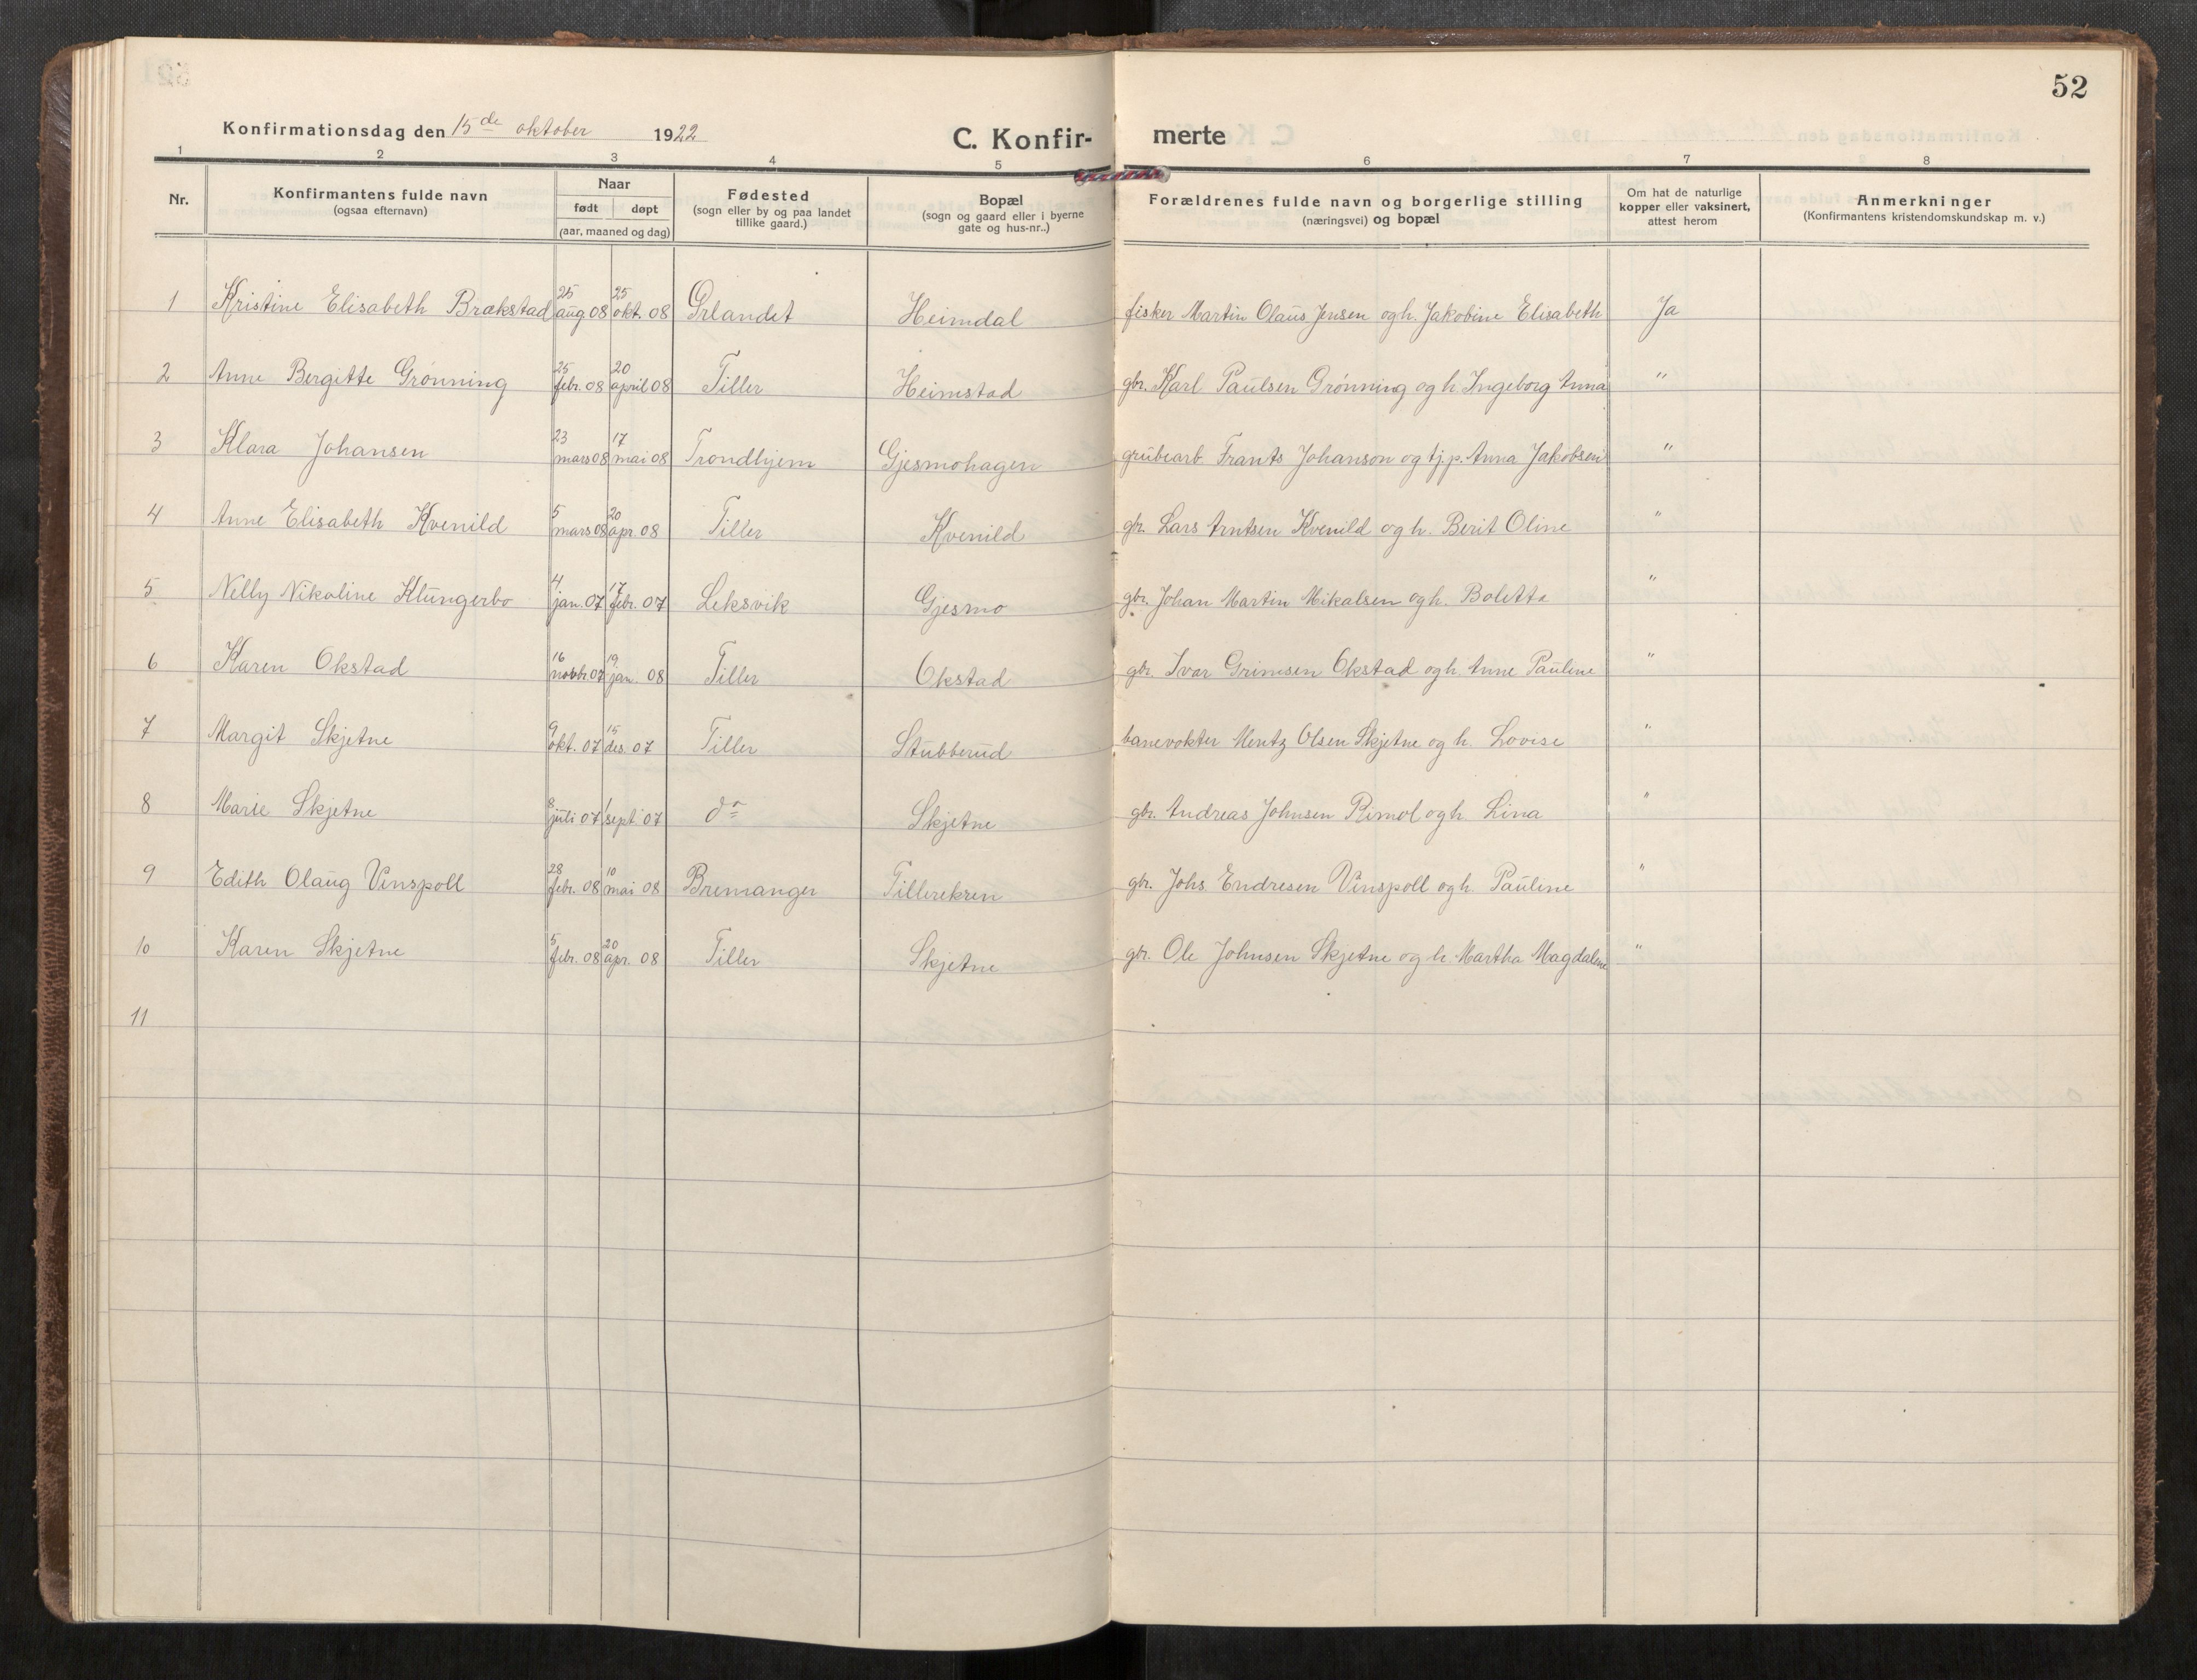 52
Konfirmationsdag den 15de oktober 1922
C. Konfir- merte
1 2 3 4 5 6 7 8
Nr. Konfirmantens fulde navn (ogsaa efternavn) Naar født døpt (aar, maaned og dag) Fødested (sogn eller by og paa landet tillike gaard.) Bopæl (sogn og gaard eller i byerne gate og hus-nr..) Forældrenes fulde navn og borgerlige stilling (næringsvei) og bopæl Om hat de naturlige kopper eller vaksinert, attest herom Anmerkninger (Konfirmantens kristendomskundskap m. v.)
1 Kristine Elisabeth Brækstad 25 aug 08 25 okt. 08 Ørlandet Heimdal fisker Martin Olaus Jensen og h. Jakobine Elisabeth Ja
2 Anne Bergitte Grønning 25 febr. 08 20 april 08 Tiller Heimstad gbr. Karl Paulsen Grønning og h. Ingeborg Anna "
3 Klara Johansen 23 mars 08 17 mai 08 Trondhjem Gjesmohagen grubearb Frants Johanson og tj.p. Anna Jakobsen "
4 Anne Elisabeth Kvenild 5 mars 08 20 apr. 08 Tiller Kvenild gbr. Lars Arntsen Kvenild og h. Berit Oline "
5 Nelly Nikoline Klungerbo 4 jan. 07 17 febr. 07 Leksvik Gjesmo gbr. Johan Martin Mikalsen og h. Boletta "
6 Karen Okstad 16 novbr. 07 19 jan. 08 Tiller Okstad gbr. Ivar Grimsen Okstad og h. Anne Pauline "
7 Margit Skjetne 9 okt. 07 15 des. 07 Tiller Stubberud banevokter Mentz Olsen Skjetne og h. Lovise "
8 Marie Skjetne 8 juli 07 1 sept. 07 do Skjetne gbr. Andreas Johnsen Rimol og h. Lina "
9 Edith Olaug Vinspoll 28 febr. 08 10 mai 08 Bremanger Tillerekren gbr. Johs Endresen Vinspoll og h. Pauline "
10 Karen Skjetne 5 febr. 08 20 apr. 08 Tiller Skjetne gbr. Ole Johnsen Skjetne og h. Martha Magdalene "
11